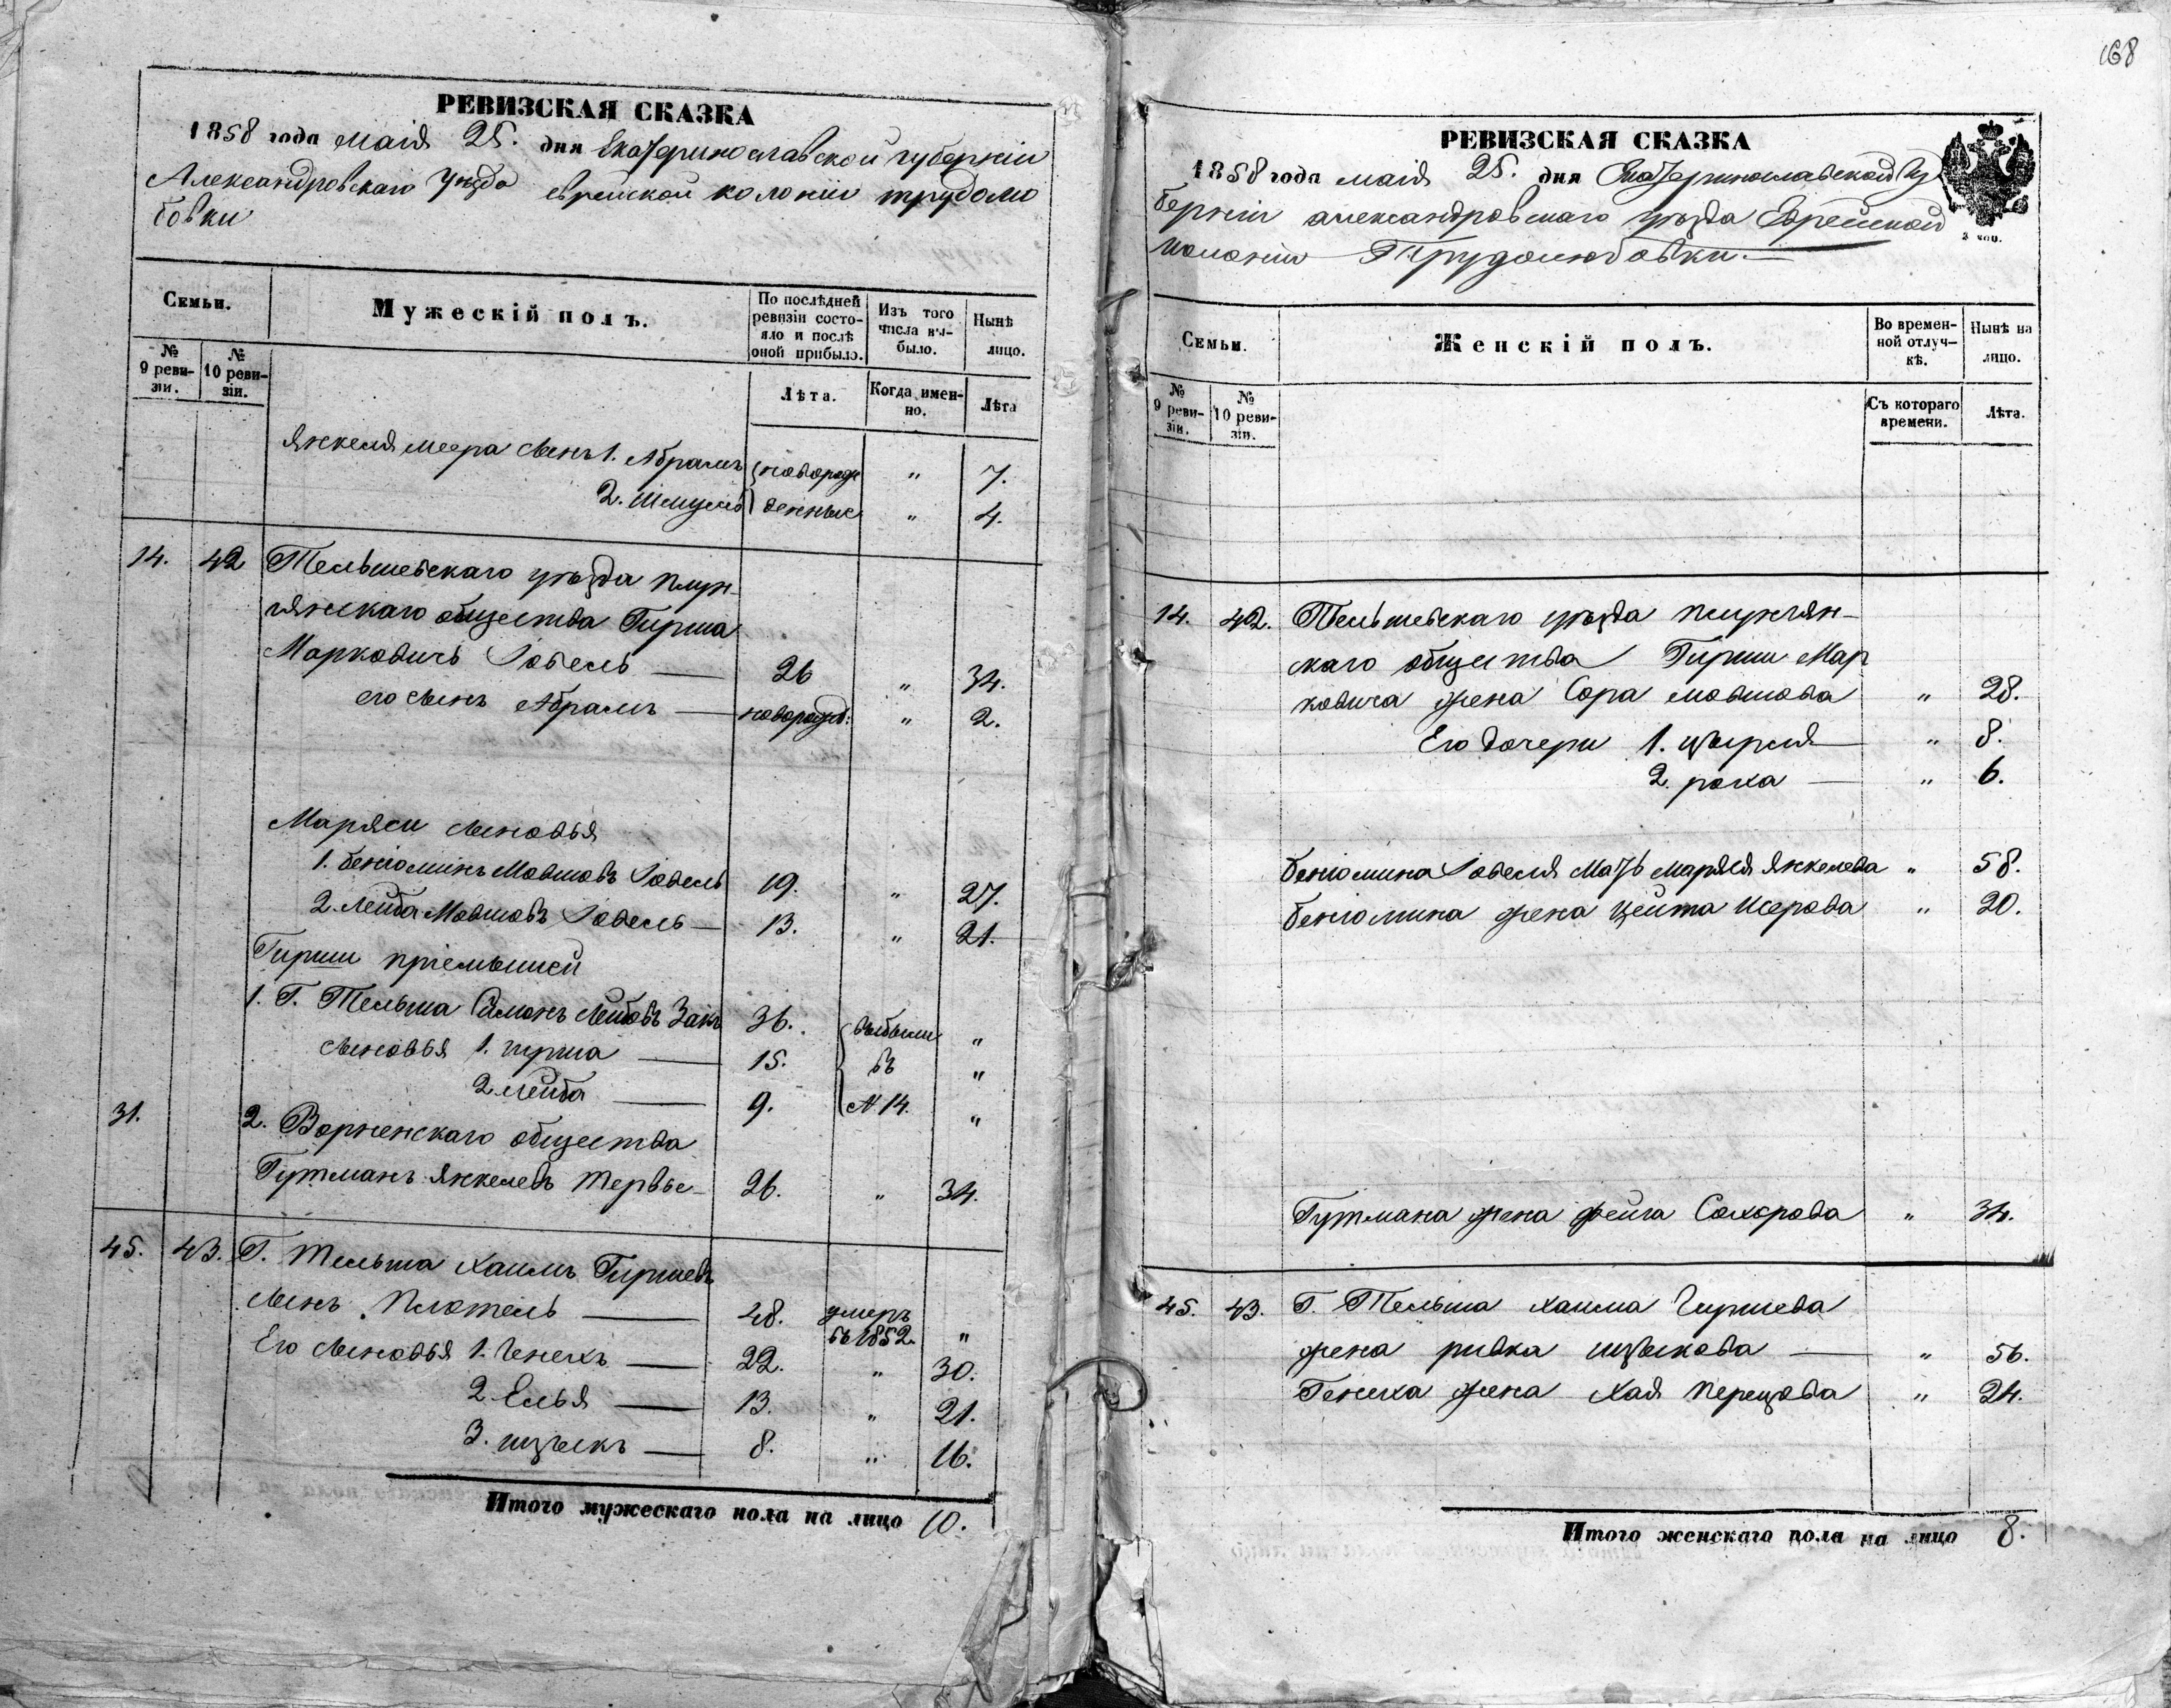 168
РЕВИЗСКАЯ СКАЗКА
1858 года маія 25. дня Екатеринославской губерніи
Александровскаго уѣзда еврейской колоніи трудолю
бовки
Семьи.
Мужескій полъ.
По послѣдней ревизіи состояло и послѣ оной прибыло.
Изъ того числа выбыло.
Нынѣ лицо.
№ 9 ревизіи.
№ 10 ревизіи.
Лѣта.
Когда именно.
Лѣта
Янкеля меера сынъ 1. Абрамъ новорож „ 7.
2. Шмуель денные „ 4.
14. 42 Тельшевскаго уѣзда плун-
гянскаго общества Гирша
Марковичь Іовель — 26 „ 34.
его сынъ Абрамъ — новорожд: „ 2.
Маряси сыновья
1. беніоминъ Мовшовъ Іовель 19. „ 27.
2. Лейба Мовшовъ Іовель — 13. „ 21.
Гирши пріемышей
1. Г. Тельша Симонъ Лейбовъ Закъ 36. выбыли „
сыновья 1. гирша — 15. въ „
2 лейба — 9. № 14. „
31. 2. Ворненскаго общества
Гутманъ Янкелевъ Тервье- 26. „ 34.
45. 43. Г. Тельша Хаимъ Гиршевъ
сынъ Плотель — 48. умеръ въ 1852. „
Его сыновья 1. Генехъ — 22. „ 30.
2. Елья — 13. „ 21.
3. ицыкъ — 8. „ 16.
Итого мужескаго пола на лицо 10.
РЕВИЗСКАЯ СКАЗКА
1858 года маія 25. дня Екатеринославской гу
берніи александровскаго уѣзда Еврейской
колоніи Трудолюбовки. —
Семьи.
Женскій полъ.
Во временной отлучкѣ.
Нынѣ на лицо.
№ 9 ревизіи.
№ 10 ревизіи.
Съ котораго времени.
Лѣта.
14. 42. Тельшевскаго уѣзда плунгян-
скаго общества Гирши Мар
ковича жена Сора мовшова „ 28.
Его дочери 1. цырля — „ 8.
2. роха — „ 6.
беніомина Іовеля Мать Маряся Янкелева „ 58.
беніомина жена Цейта Исерова „ 20.
Гутмана жена фейга Сохорова „ 34.
45. 43. Г. Тельша хаима Гиршева
жена ривка ицыкова — „ 56.
Генеха жена хая перецова „ 24.
Итого женскаго пола на лицо 8.